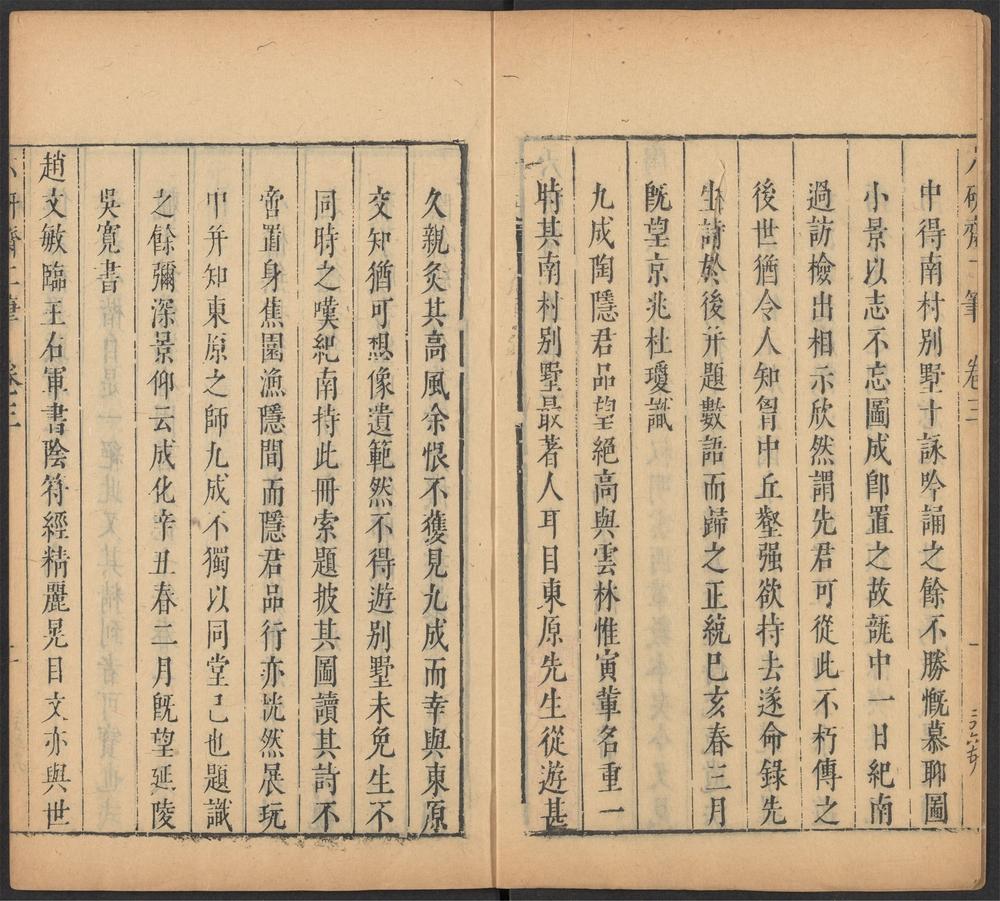 中得南村别墅十詠吟誦之餘不勝慨慕聊圖
小景以志不忘圖成卽置之故篋中一日紀南
過訪檢出相示欣然謂先君可從此不朽傳之
後世猶令人知胷中丘壑强欲持去遂命錄先
生詩於後幷題數語而歸之正統己亥春三月
旣望京兆杜瓊識
九成陶隱君品望絕高與雲林惟寅輩名重一
時其南村别墅最著人耳目東原先生從遊甚
久親炙其高風余恨不獲見九成而幸與東原
交知猶可想像遺範然不得遊别墅未免生不
同時之嘆紀南持此冊索題披其圖讀其詩不
啻置身焦園漁隱間而隱君品行亦恍然展玩
中幷知東原之師九成不獨以同堂已也題識
之餘彌深景仰云成化辛丑春二月旣望延陵
吳寬書
趙文敏臨王右軍書陰符經精麗晃目文亦與世
六硏齋二筆 卷三